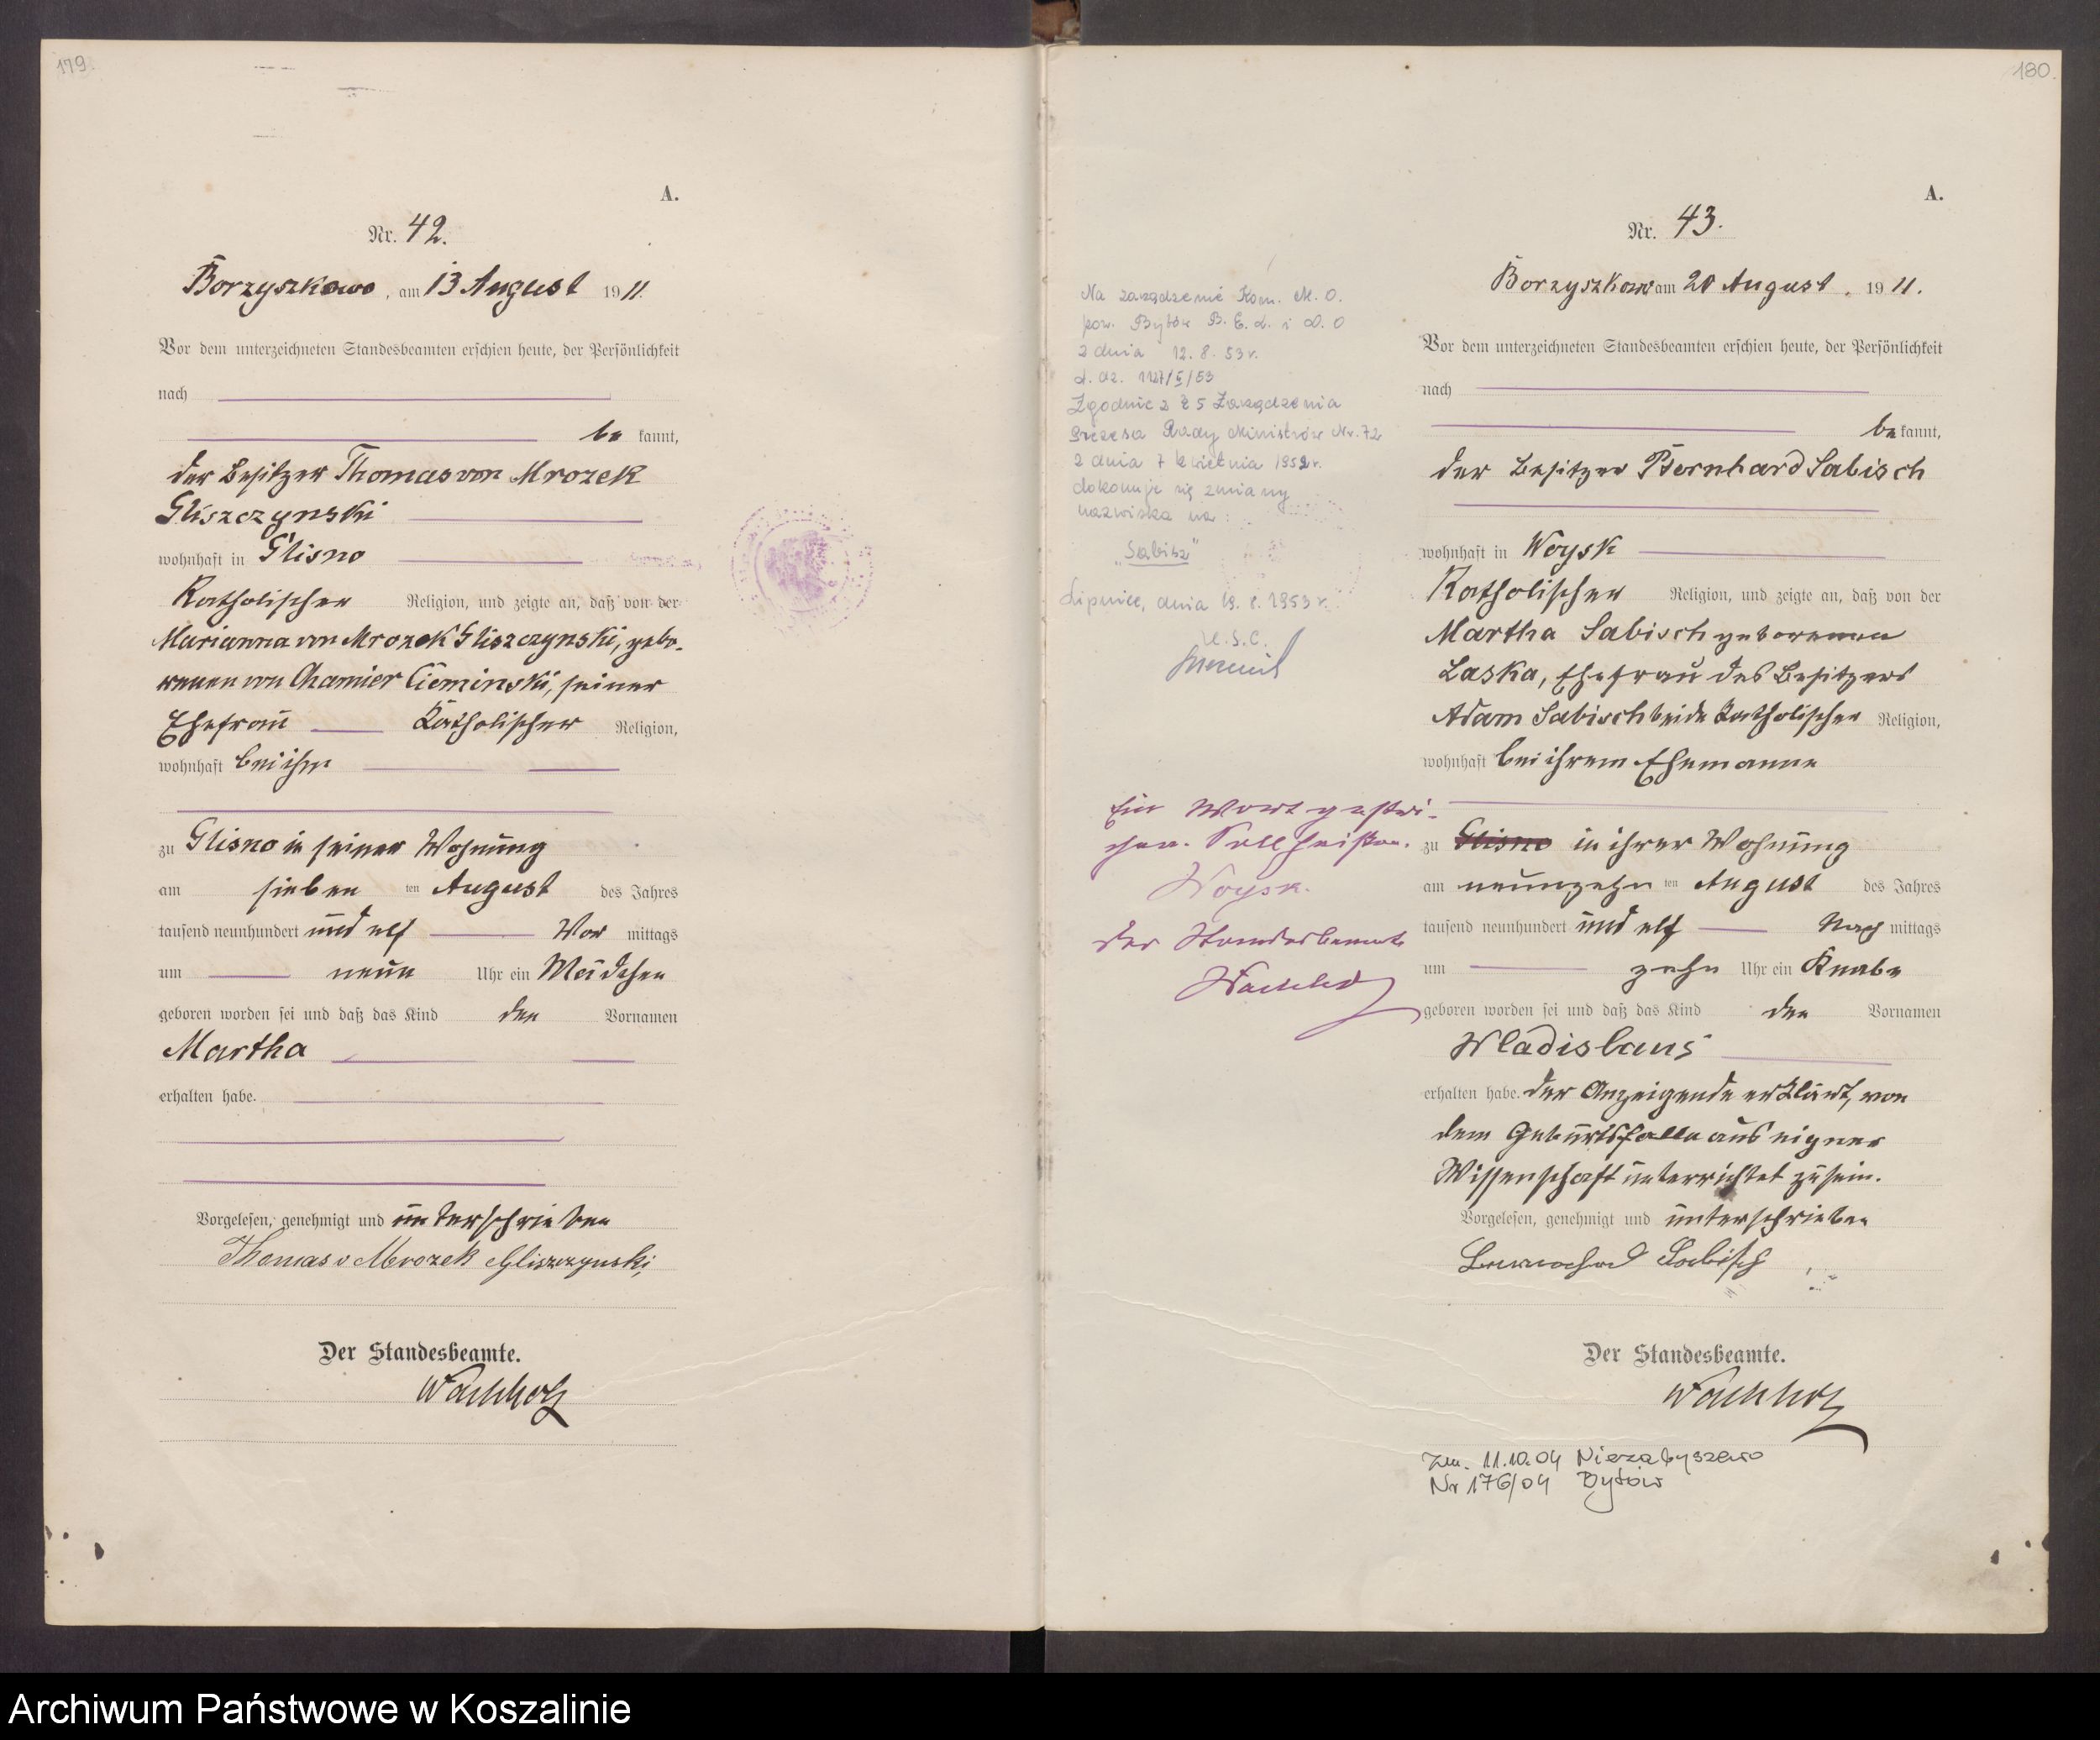 179.
A.
Nr. 42.
Borzyszkowo, am 13 August 1911.
Vor dem unterzeichneten Standesbeamten erschien heute, der Persönlichkeit
nach
be kannt,
der Besitzer Thomas von Mrozek
Gliszczynski
wohnhaft in Glisno
Katholischer Religion, und zeigte an, daß von der
Marianna von Mrozek Gliszczynski, gebo-
renen von Chamier Cieminski, seiner
Ehefrau Katholischer Religion,
wohnhaft bei ihm
zu Glisno in seiner Wohnung
am sieben ten August des Jahres
tausend neunhundert und elf Vor mittags
um neun Uhr ein Mädchen
geboren worden sei und daß das Kind den Vornamen
Martha
erhalten habe.
Vorgelesen, genehmigt und unterschrieben
Thomas v Mrozek Gliszczynski
Der Standesbeamte.
Wachholz
180.
A.
Nr. 43.
Borzyszkowo am 20 August. 1911.
Vor dem unterzeichneten Standesbeamten erschien heute, der Persönlichkeit
nach
be kannt,
der Besitzer Bernhard Sabisch
wohnhaft in Woysk
Katholischer Religion, und zeigte an, daß von der
Martha Sabisch geborenen
Laska, Ehefrau des Besitzers
Adam Sabisch beide Katholischer Religion,
wohnhaft bei ihrem Ehemanne
zu Glisno in ihrer Wohnung
am neunzehn ten August des Jahres
tausend neunhundert und elf Nach mittags
um zehn Uhr ein Knabe
geboren worden sei und daß das Kind den Vornamen
Wladislaus
erhalten habe. Der Anzeigende erklärt, von
dem Geburtsfalle aus eigner
Wissenschaft unterrichtet zu sein.
Vorgelesen, genehmigt und unterschrieben
Bernhard Sabisch
Der Standesbeamte.
Wachholz
Zm. 11.10.04 Niezabyszewo
Nr 176/04 Bytów
Na zarządzenie Kom. M. O.
pow. Bytów B. E. L. i D. O
z dnia 12. 8. 53 r.
L. dz. 1127/E/53
Zgodnie z § 5 Zarządzenia
Prezesa Rady Ministrów Nr. 72
z dnia 7 kwietnia 1952 r.
dokonuje się zmiany
nazwiska na:
"Sabisz"
Lipnice, dnia 19. 8. 1953 r.
U.S.C.
Ein Wort gestri-
chen. Soll heißen.
Woysk.
Der Standesbeamte
Wachholz
Archiwum Państwowe w Koszalinie